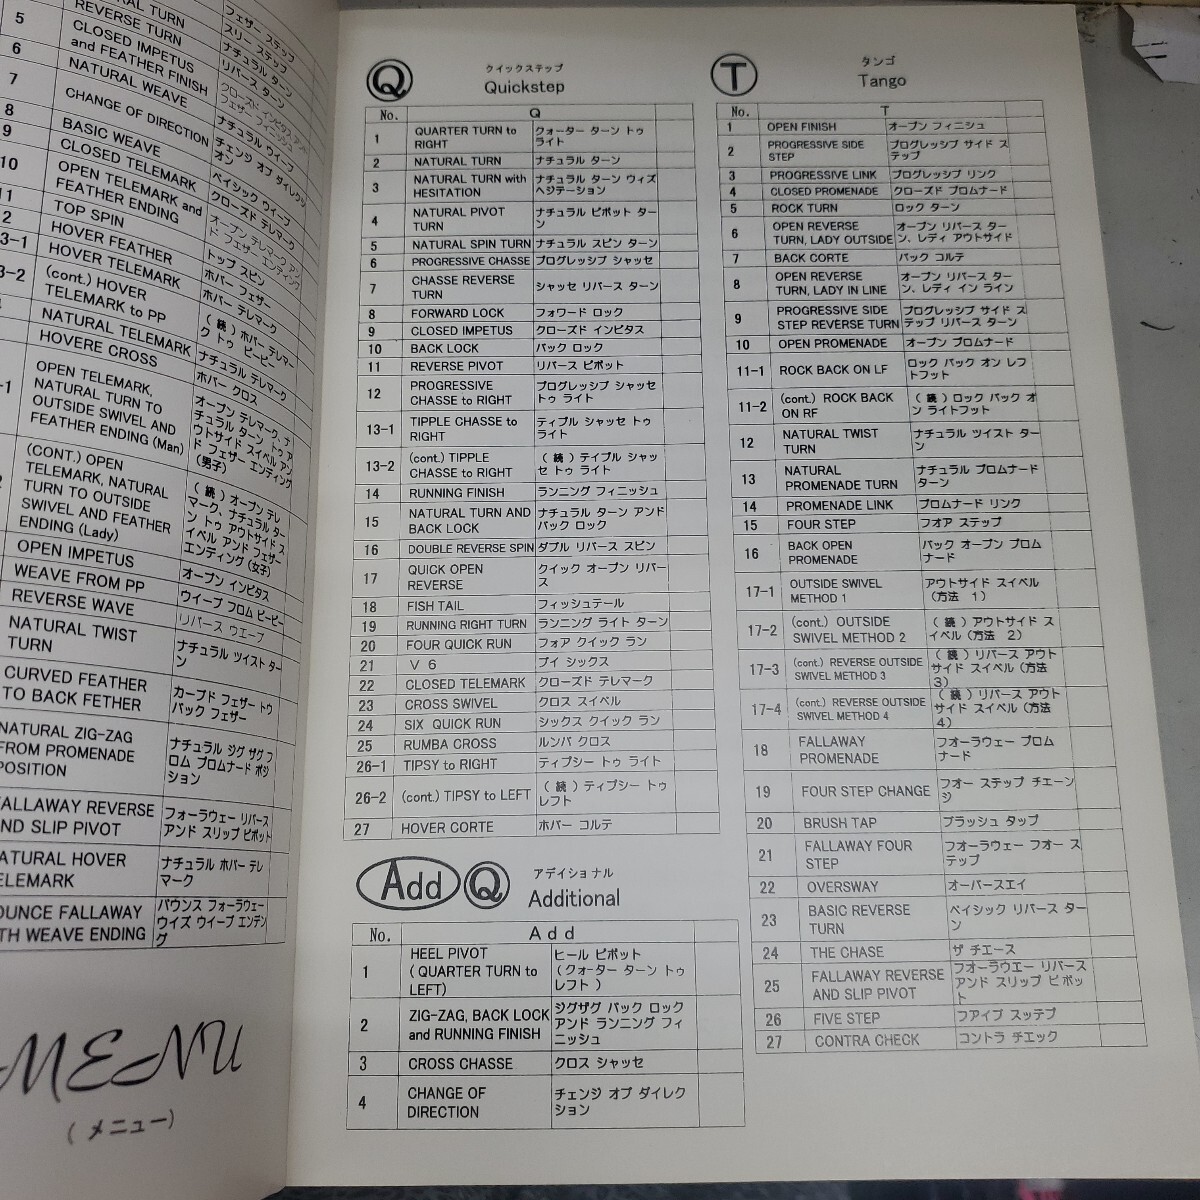 5
6
7
8
9
10
11
TURN
REVERSE TURN
CLOSED IMPETUS
and FEATHER FINISH
NATURAL WEAVE
CHANGE OF DIRECTION
BASIC WEAVE
CLOSED TELEMARK
OPEN TELEMARK and
FEATHER ENDING
TOP SPIN
HOVER FEATHER
HOVER TELEMARK
(cont.) HOVER
TELEMARK to PP
NATURAL TELEMARK
HOVERE CROSS
OPEN TELEMARK,
NATURAL TURN TO
OUTSIDE SWIVEL AND
FEATHER ENDING (Man)
(CONT.) OPEN
TELEMARK, NATURAL
TURN TO OUTSIDE
SWIVEL AND FEATHER
ENDING (Lady)
OPEN IMPETUS
WEAVE FROM PP
REVERSE WAVE
NATURAL TWIST
TURN
CURVED FEATHER
TO BACK FETHER
NATURAL ZIG-ZAG
FROM PROMENADE
POSITION
FALLAWAY REVERSE
AND SLIP PIVOT
フェザー ステップ
リバース ターン
ナチュラル ウィーブ
チェンジ オブ ダイレクション
ベイシック ウィーブ
クローズド テレマーク
オープン テレマーク アンド フェザー エンディング
トップ スピン
ホバー フェザー
ホバー テレマーク
(続) ホバー テレマーク トゥ ピーピー
ナチュラル テレマーク
ホバー クロス
オープン テレマーク、ナチュラル ターン トゥ アウトサイド スイベル アンド フェザー エンディング(男子)
(続) オープン テレマーク、ナチュラル ターン トゥ アウトサイド スイベル アンド フェザー エンディング(女子)
オープン インピタス
ウィーブ フロム ピーピー
リバース ウエーブ
ナチュラル ツイスト ターン
カーブド フェザー トゥ バック フェザー
ナチュラル ジグ ザグ フロム プロムナード ポジション
フォーラウェー リバース アンド スリップ ピボット
ナチュラル ホバー テレマーク
バウンス フォーラウェー ウイズ ウイーブ エンデング
MENU
(メニュー)
Q
クイックステップ
Quickstep
No. Q
1 QUARTER TURN to RIGHT クォーター ターン トゥ ライト
2 NATURAL TURN ナチュラル ターン
3 NATURAL TURN with HESITATION ナチュラル ターン ウィズ ヘジテーション
4 NATURAL PIVOT TURN ナチュラル ピボット ターン
5 NATURAL SPIN TURN ナチュラル スピン ターン
6 PROGRESSIVE CHASSE プログレッシブ シャッセ
7 CHASSE REVERSE TURN シャッセ リバース ターン
8 FORWARD LOCK フォワード ロック
9 CLOSED IMPETUS クローズド インピタス
10 BACK LOCK バック ロック
11 REVERSE PIVOT リバース ピボット
12 PROGRESSIVE CHASSE to RIGHT プログレッシブ シャッセ トゥ ライト
13-1 TIPPLE CHASSE to RIGHT ティプル シャッセ トゥ ライト
13-2 (cont.) TIPPLE CHASSE to RIGHT (続) テイプル シャッセ トゥ ライト
14 RUNNING FINISH ランニング フィニッシュ
15 NATURAL TURN AND BACK LOCK ナチュラル ターン アンド バック ロック
16 DOUBLE REVERSE SPIN ダブル リバース スピン
17 QUICK OPEN REVERSE クイック オープン リバース
18 FISH TAIL フィッシュテール
19 RUNNING RIGHT TURN ランニング ライト ターン
20 FOUR QUICK RUN フォア クイック ラン
21 V 6 ブイ シックス
22 CLOSED TELEMARK クローズド テレマーク
23 CROSS SWIVEL クロス スイベル
24 SIX QUICK RUN シックス クイック ラン
25 RUMBA CROSS ルンバ クロス
26-1 TIPSY to RIGHT ティプシー トゥ ライト
26-2 (cont.) TIPSY to LEFT (続) ティプシー トゥ レフト
27 HOVER CORTE ホバー コルテ
Add Q
アデイショナル
Additional
No. Add
1 HEEL PIVOT (QUARTER TURN to LEFT) ヒール ピボット (クォーター ターン トゥ レフト)
2 ZIG-ZAG, BACK LOCK and RUNNING FINISH ジグザグ バック ロック アンド ランニング フィニッシュ
3 CROSS CHASSE クロス シャッセ
4 CHANGE OF DIRECTION チェンジ オブ ダイレクション
T
タンゴ
Tango
No. T
1 OPEN FINISH オープン フィニシュ
2 PROGRESSIVE SIDE STEP プログレッシブ サイド ステップ
3 PROGRESSIVE LINK プログレッシブ リンク
4 CLOSED PROMENADE クローズド プロムナード
5 ROCK TURN ロック ターン
6 OPEN REVERSE TURN, LADY OUTSIDE オープン リバース ターン、レディ アウトサイド
7 BACK CORTE バック コルテ
8 OPEN REVERSE TURN, LADY IN LINE オープン リバース ターン、レディ イン ライン
9 PROGRESSIVE SIDE STEP REVERSE TURN プログレッシブ サイド ステップ リバース ターン
10 OPEN PROMENADE オープン プロムナード
11-1 ROCK BACK ON LF ロック バック オン レフトフット
11-2 (cont.) ROCK BACK ON RF (続) ロック バック オン ライトフット
12 NATURAL TWIST TURN ナチュラル ツイスト ターン
13 NATURAL PROMENADE TURN ナチュラル プロムナード ターン
14 PROMENADE LINK プロムナード リンク
15 FOUR STEP フオア ステップ
16 BACK OPEN PROMENADE バック オープン プロムナード
17-1 OUTSIDE SWIVEL METHOD 1 アウトサイド スイベル (方法 1)
17-2 (cont.) OUTSIDE SWIVEL METHOD 2 (続) アウトサイド スイベル (方法 2)
17-3 (cont.) REVERSE OUTSIDE SWIVEL METHOD 3 (続) リバース アウトサイド スイベル (方法 3)
17-4 (cont.) REVERSE OUTSIDE SWIVEL METHOD 4 (続) リバース アウトサイド スイベル (方法 4)
18 FALLAWAY PROMENADE フオーラウェー プロムナード
19 FOUR STEP CHANGE フオー ステップ チェーンジ
20 BRUSH TAP ブラッシュ タップ
21 FALLAWAY FOUR STEP フオーラウェー フオー ステップ
22 OVERSWAY オーバースエイ
23 BASIC REVERSE TURN ベイシック リバース ターン
24 THE CHASE ザ チエース
25 FALLAWAY REVERSE AND SLIP PIVOT フオーラウエー リバース アンド スリップ ピボット
26 FIVE STEP フアイブ スッテプ
27 CONTRA CHECK コントラ チエック